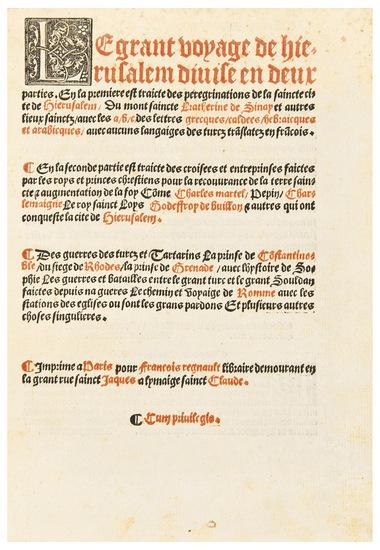 LE grant voyage de hie-
rusalem diuise en deux
parties. En la premiere est traicte des peregrinations de la saincte ci
te de Hierusalem/ Du mont saincte Katherine de Sinay et autres
lieux sainctz/auec les a/b/c/des lettres grecques/caldees/hebraicques
et arabicques/ auec aucuns langaiges des turcz trãslatez en frãcois.
¶ En la seconde partie est traicte des croisees et entreprinses faictes
par les roys et princes chrestiens pour la recouurance de la terre sain-
cte ⁊ augmentation de la foy Cõme Charles martel/ Pepin/ Char-
lemaigne Le roy sainct Loys Godeffroy de buillon ⁊ autres qui ont
conqueste la cite de Hierusalem.
¶ Des guerres des turcz et Tartarins La prinse de Cõstantino-
ble/du siege de Rhodes/la prinse de Grenade/ auec lhystoire de So-
phie Les guerres et batailles entre le grant turc et le grant Souldan
faictes depuis na guere Le chemin et voyaige de Romme auec les
stations des eglises ou sont les grans pardons Et plusieurs autres
choses singulieres.
¶ Imprime a Paris pour Francois regnault libraire demourant en
la grant rue sainct Jaques a lymaige sainct Claude.
¶ Cum priuilegio.